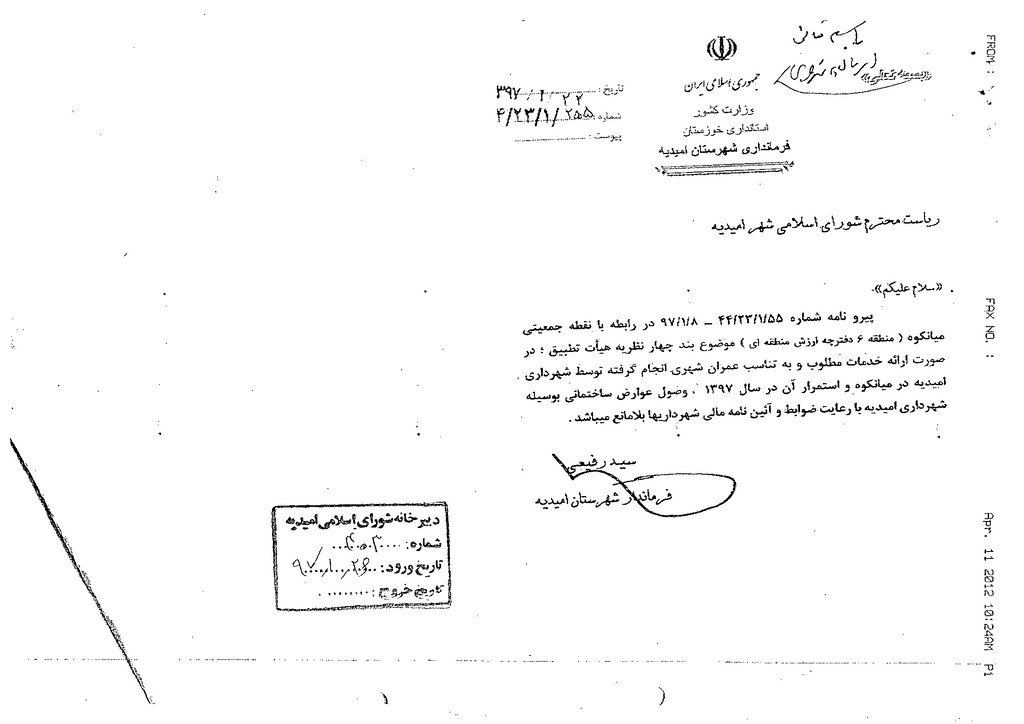 باسمه تعالی
«بسمه تعالی»
جمهوری اسلامی ایران
وزارت کشور
استانداری خوزستان
فرمانداری شهرستان امیدیه
تاریخ : ۳۹۷/۱/۲۲
شماره : ۴/۲۳/۱/۲۵۵
پیوست :
ریاست محترم شورای اسلامی شهر امیدیه
«سلام علیکم».
پیرو نامه شماره ۴۴/۲۳/۱/۵۵ – ۹۷/۱/۸ در رابطه با نقطه جمعیتی
میانکوه ( منطقه ۶ دفترچه ارزش منطقه ای ) موضوع بند چهار نظریه هیأت تطبیق ؛ در
صورت ارائه خدمات مطلوب و به تناسب عمران شهری انجام گرفته توسط شهرداری
امیدیه در میانکوه و استمرار آن در سال ۱۳۹۷ ، وصول عوارض ساختمانی بوسیله
شهرداری امیدیه با رعایت ضوابط و آئین نامه مالی شهرداریها بلامانع میباشد .
سید رفیعی
فرماندار شهرستان امیدیه
دبیرخانه شورای اسلامی امیدیه
شماره :
تاریخ ورود :
تاریخ خروج :
FROM :
FAX NO. :
Apr. 11 2012 10:24AM P1